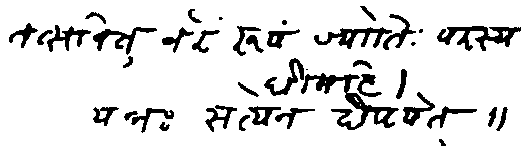 तत्सवितु र्वरं रूपं ज्योतिः परस्य
धीमहि ।
यन्नः सत्येन दीपयेत् ॥